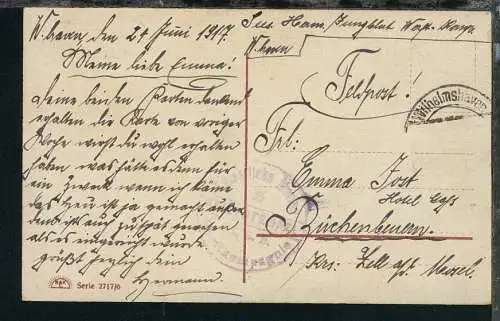 W. haven den 24 Juni 1917.
Meine liebe Emma!
Deine beiden Karten dankend
erhalten die Karte von voriger
Woche wirst du wohl erhalten
haben was hätte es denn für
ein Zweck wenn ich käme
das Heu ist ja gemacht
denk ist auch zu spät gewesen
als es eingereicht wurde
grüßt herzlich dein
Hermann.
Serie 2717/6
Sees. Herm. Jungblut
W. haven
Feldpost!
Wilhelmshaven
Frl:
Emma Jost
Hotel
Büchenbeuern.
Krs: Zell a/d. Mosel.